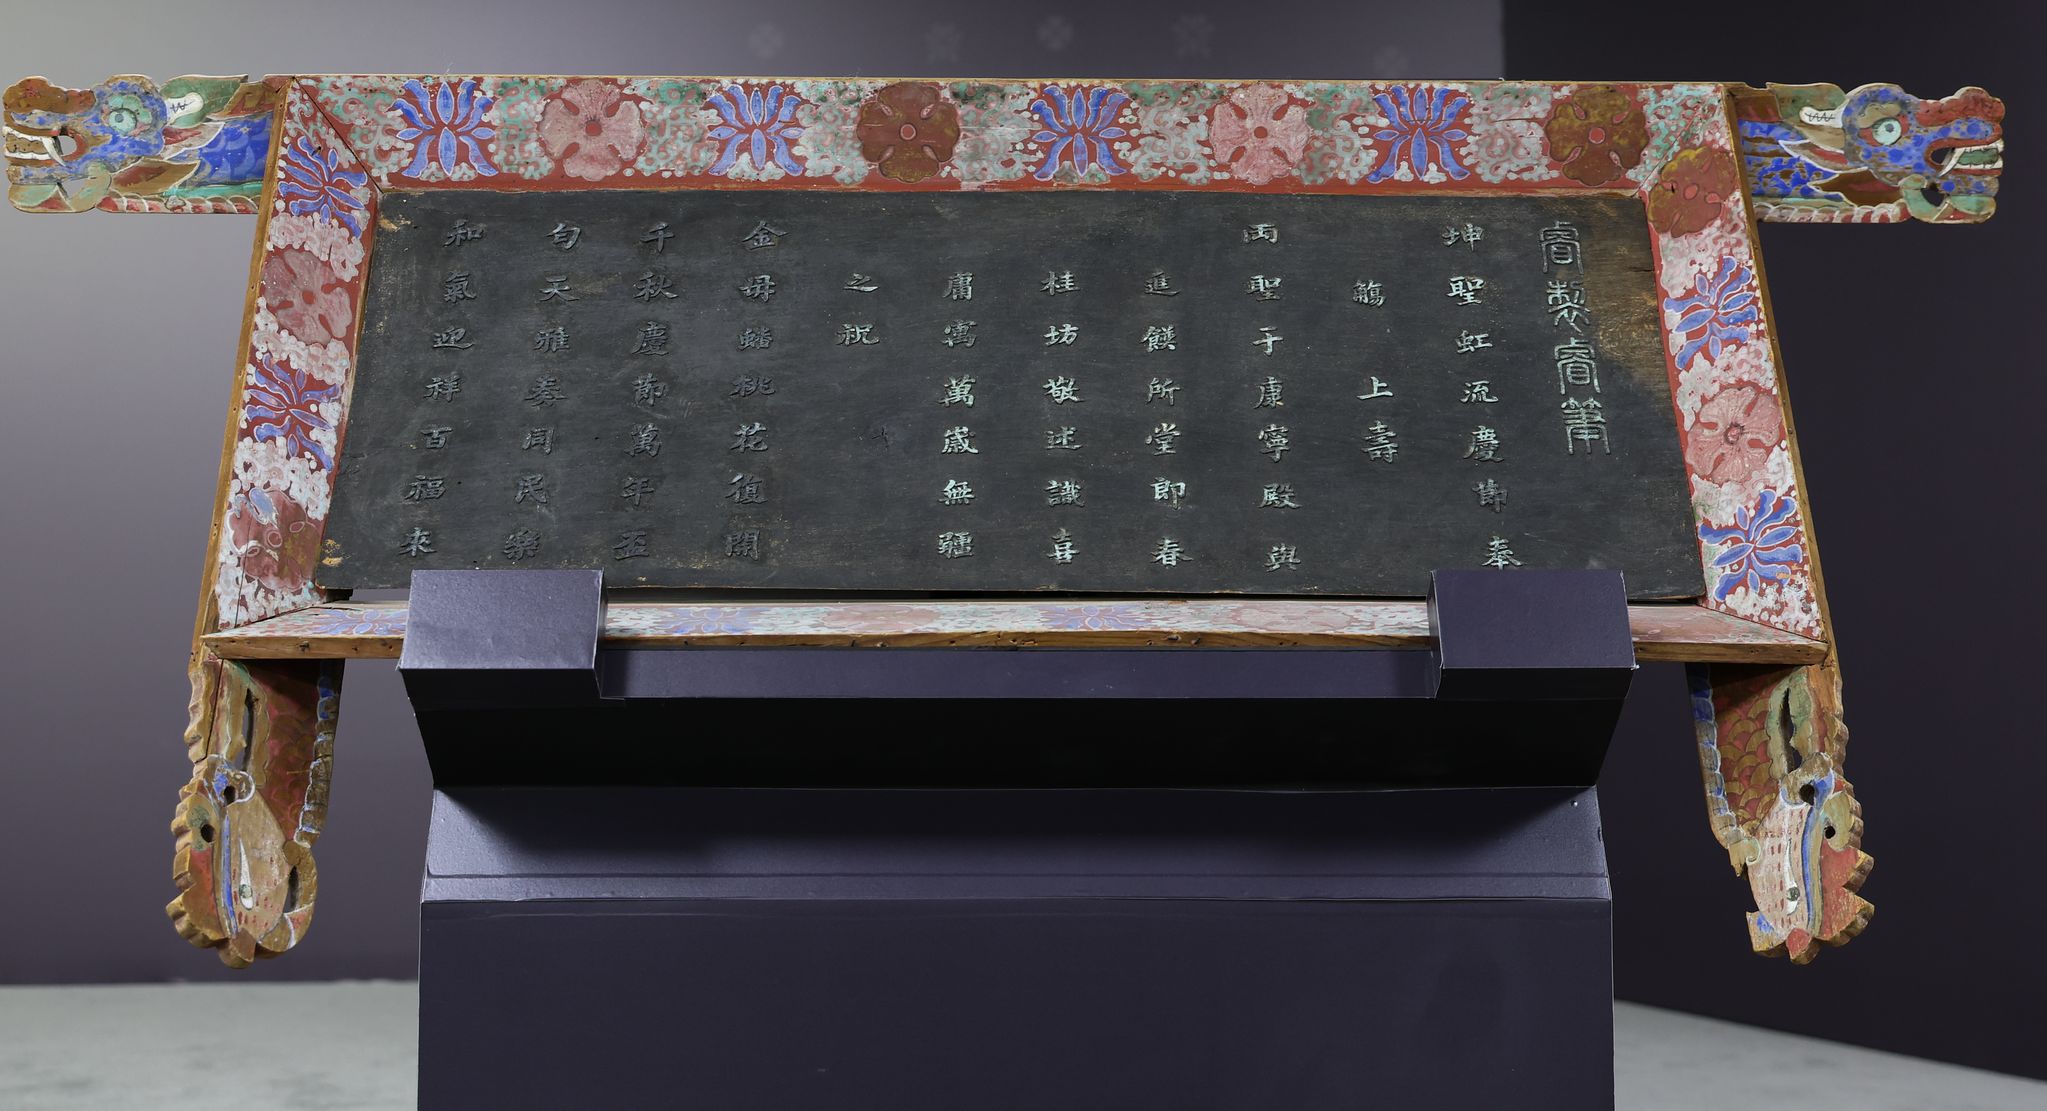 睿製睿筆
坤聖虹流慶節奉
觴　上壽
兩聖于康寧殿與
進饌所堂郎春
桂坊敬述識喜
庸寓萬歲無疆
之祝
金母蟠桃花復開
千秋慶節萬年盃
勻天雅奏同民樂
和氣迎祥百福來